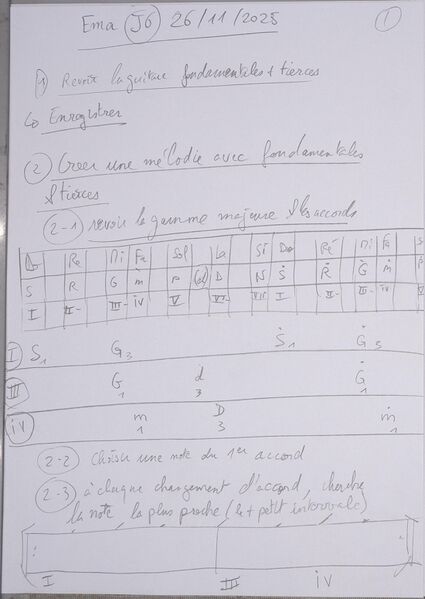 Ema J6 26/11/2025 1
1) Revoir la guitare fondamentales + tierces
↳ Enregistrer
2 Créer une mélodie avec fondamentales
& tierces
2-1 revoir la gamme majeure & les accords
Do Re Mi Fa Sol La Si Do Ré Mi Fa S
S R G m P (d) D N Ṡ Ṙ Ġ ṁ
I II- III- IV V VI- VII I II- III- IV V
I S1 G3 Ṡ1 Ġ3
III G1 d3 Ġ1
iv m1 D3 ṁ1
2-2 Choisir une note du 1er accord
2-3 à chaque changement d'accord, cherche
la note la plus proche (le + petit intervalle)
I III iv